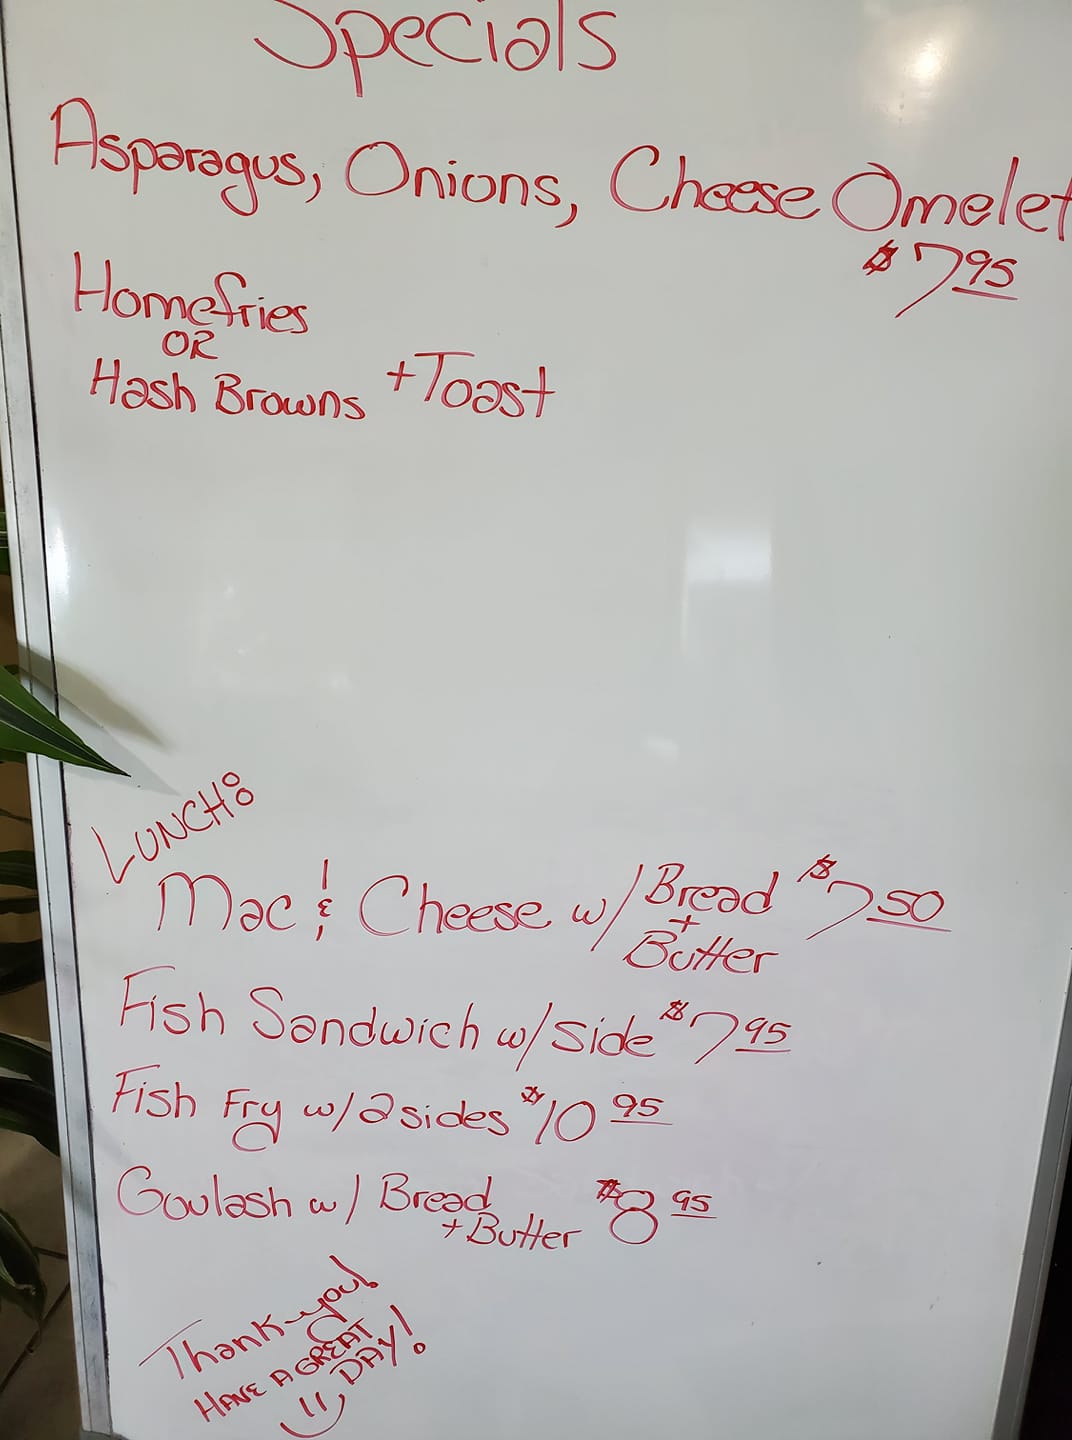 Specials
Asparagus, Onions, Cheese Omelet
$7 95
Homefries
OR
Hash Browns + Toast
LUNCH:
Mac & Cheese w/ Bread + Butter $7 50
Fish Sandwich w/ side $7 95
Fish Fry w/ 2 sides $10 95
Goulash w/ Bread + Butter $8 95
Thank-you!
HAVE A GREAT
DAY!